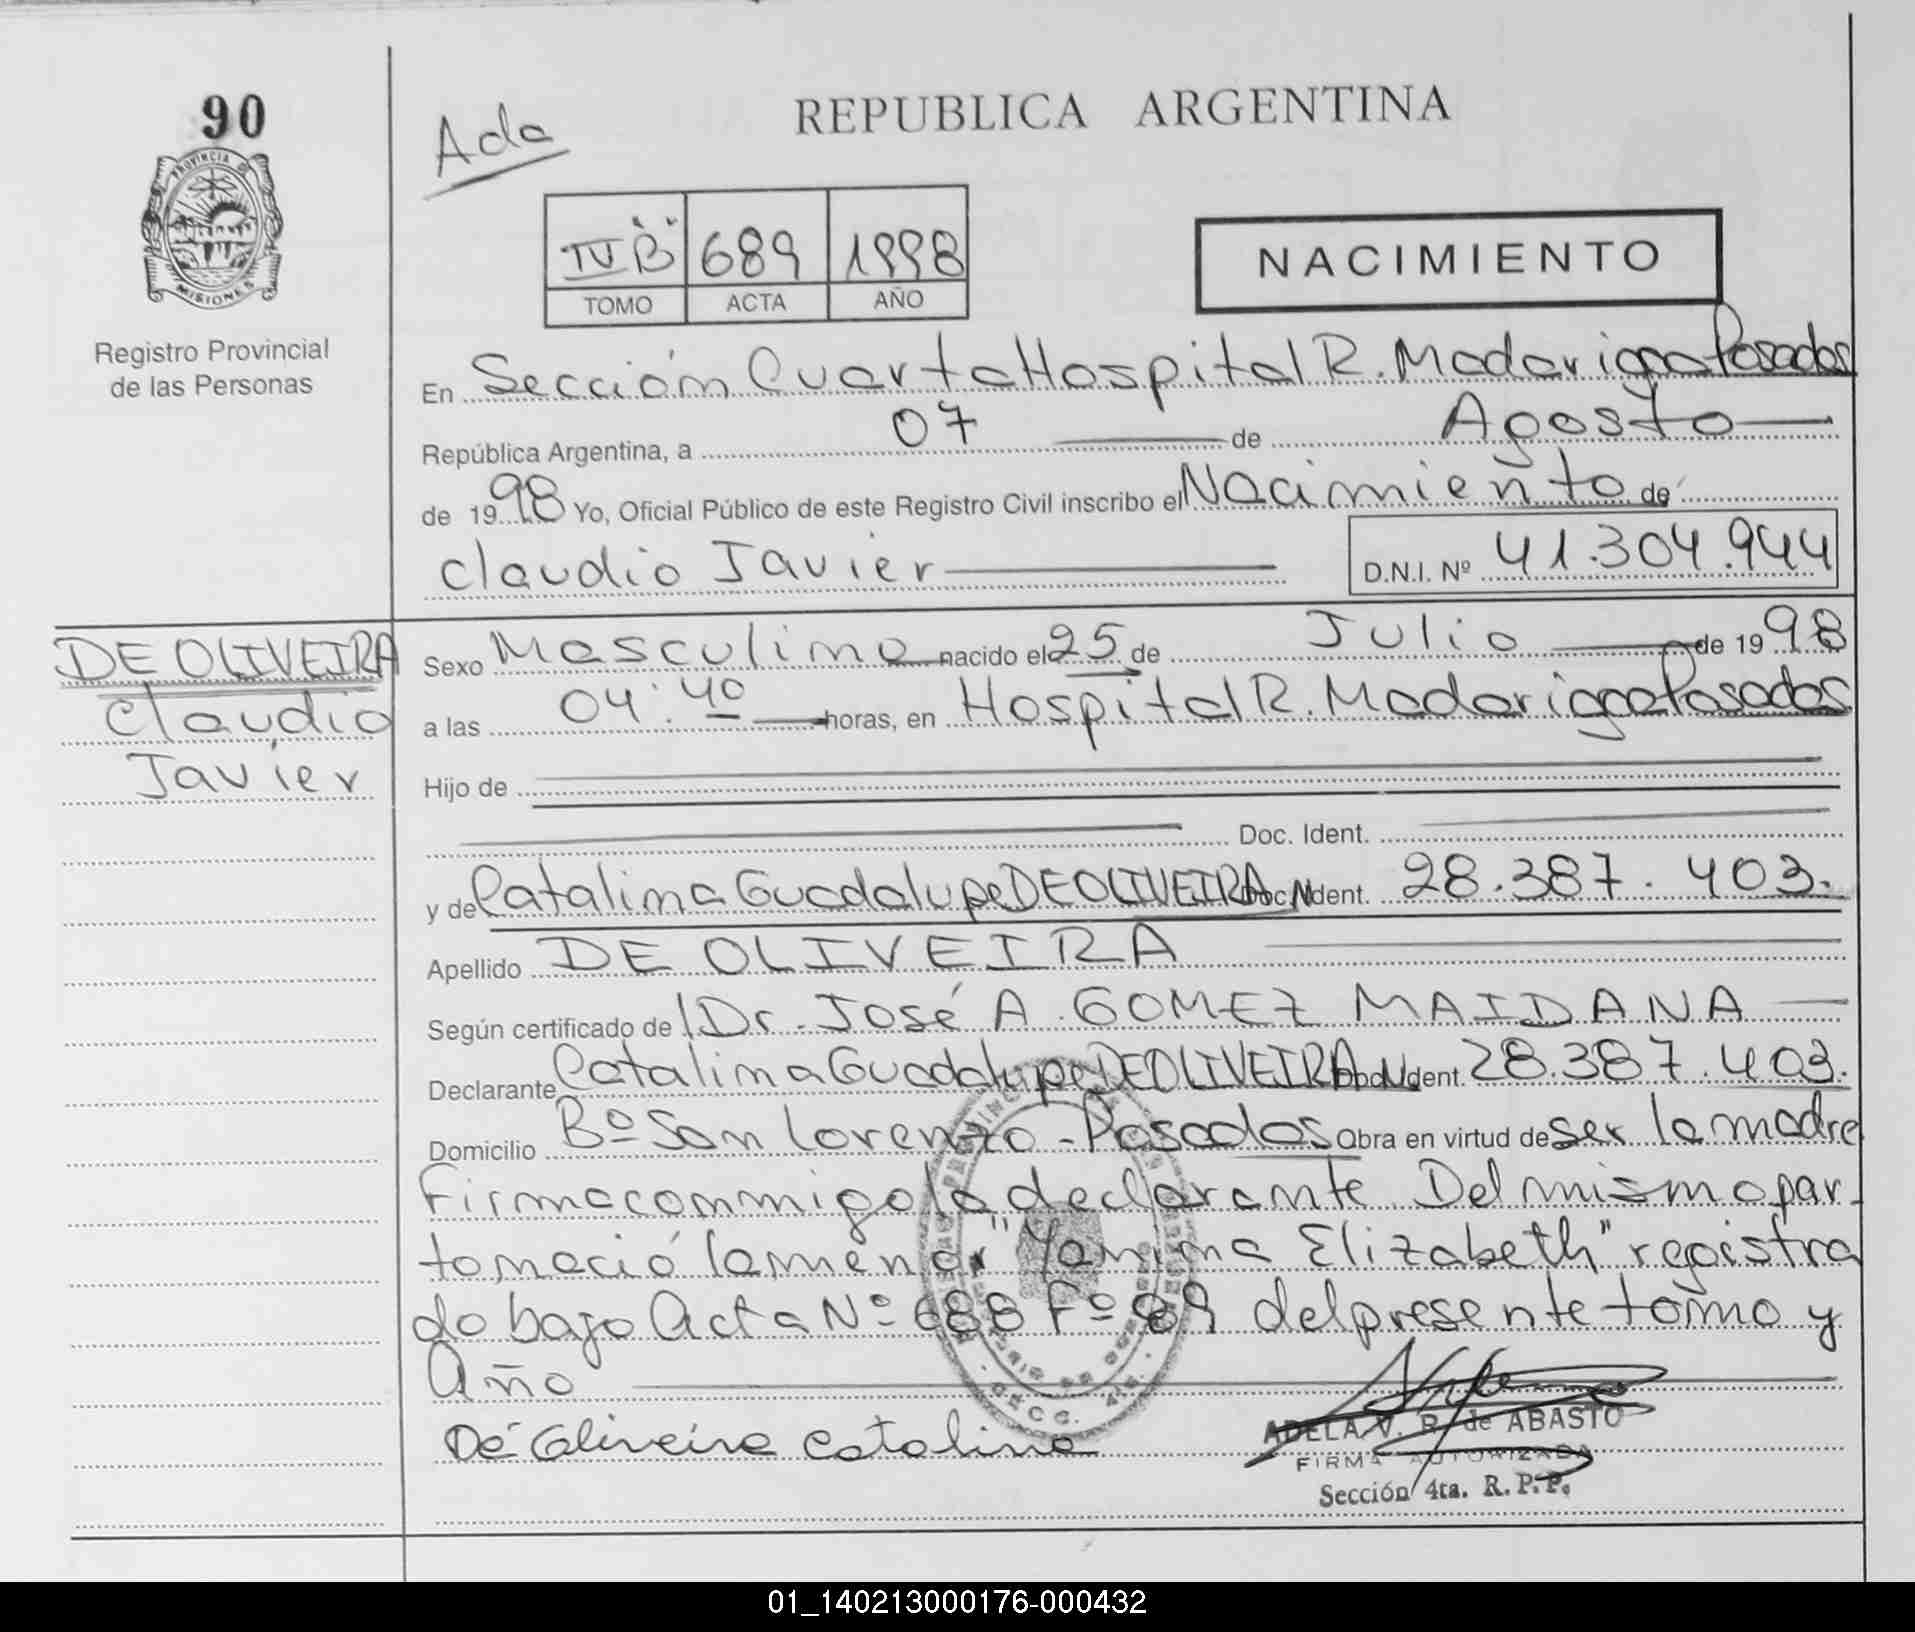 90
Ada
REPUBLICA ARGENTINA
PROVINCIA DE
MISIONES
IV "B" 689 1998
TOMO ACTA AÑO
NACIMIENTO
Registro Provincial
de las Personas
En Sección Cuarta Hospital R. Madariaga Posadas
República Argentina, a 07 de Agosto
de 1998 Yo, Oficial Público de este Registro Civil inscribo el Nacimiento de
Claudio Javier D.N.I. Nº 41.304.944
DE OLIVEIRA
Claudio
Javier
Sexo Masculino nacido el 25 de Julio de 1998
a las 04:40 horas, en Hospital R. Madariaga Posadas
Hijo de
Doc. Ident.
y de Catalina Guadalupe DE OLIVEIRA DNI Doc. Ident. 28.387.403.
Apellido DE OLIVEIRA
Según certificado de Dr. José A. GOMEZ MAIDANA
Declarante Catalina Guadalupe DE OLIVEIRA DNI Doc. Ident. 28.387.403.
Domicilio Bº San Lorenzo - Posadas Obra en virtud de ser la madre
Firma conmigo la declarante. Del mismo par-
to nació la menor "Yanina Elizabeth" registra
do bajo Acta Nº 688 Fº 89 del presente tomo y
Año
De Oliveira Catalina
ADELA V. R. de ABASTO
FIRMA AUTORIZADA
Sección 4ta. R. P. P.
01_140213000176-000432